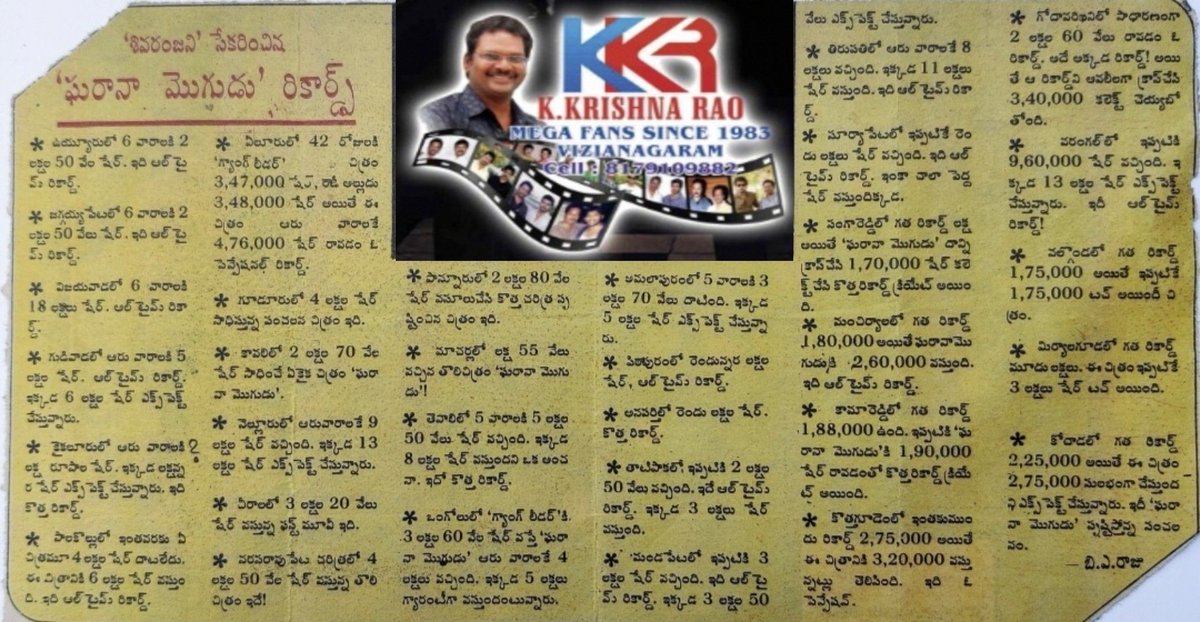 'శివరంజని' సేకరించిన
'ఘరానా మొగుడు' రికార్డ్స్
* ఉయ్యూరులో 6 వారాలకి 2
లక్షల 50 వేల షేర్. ఇది ఆల్ టై
మ్ రికార్డ్.
* జగ్గయ్యపేటలో 6 వారాలకి 2
లక్షల 50 వేలు షేర్. ఇది ఆల్ టై
మ్ రికార్డ్.
* విజయవాడలో 6 వారాలకి
18 లక్షలు షేర్. ఆల్ టైమ్ రికా
ర్డ్.
* గుడివాడలో ఆరు వారాలకి 5
లక్షల షేర్. ఆల్ టైమ్ రికార్డ్.
ఇక్కడ 6 లక్షల షేర్ ఎక్స్‌పెక్ట్
చేస్తున్నారు.
* కైకలూరులో ఆరు వారాలకి 2
లక్ష రూపాల షేర్. ఇక్కడ లక్షన్న
ర షేర్ ఎక్స్‌పెక్ట్ చేస్తున్నారు. ఇది
కొత్త రికార్డ్.
* పాలకొల్లులో ఇంతవరకు ఏ
చిత్రమూ 4 లక్షల షేర్ దాటలేదు.
ఈ చిత్రానికి 6 లక్షల షేర్ వస్తుం
ది. ఇది ఆల్ టైమ్ రికార్డ్.
* ఏలూరులో 42 రోజులకి
'గ్యాంగ్ లీడర్' చిత్రం
3,47,000 షేర్, రౌడీ అల్లుడు
3,48,000 షేర్ అయితే ఈ
చిత్రం ఆరు వారాలకే
4,76,000 షేర్ రావడం ఓ
సెన్సేషనల్ రికార్డ్.
* గూడూరులో 4 లక్షల షేర్
సాధిస్తున్న సంచలన చిత్రం ఇది.
* కావలిలో 2 లక్షల 70 వేల
షేర్ సాధించే ఏకైక చిత్రం 'ఘరా
నా మొగుడు'.
* వెల్లూరులో ఆరువారాలకే 9
లక్షల షేర్ వచ్చింది. ఇక్కడ 13
లక్షల షేర్ ఎక్స్‌పెక్ట్ చేస్తున్నారు.
* చీరాలలో 3 లక్షల 20 వేలు
షేర్ వస్తున్న ఫస్ట్ మూవీ ఇది.
* వరవరావుపేట చరిత్రలో 4
లక్షల 50 వేల షేర్ వస్తున్న తొలి
చిత్రం ఇదే!
KKR
K.KRISHNA RAO
MEGA FANS SINCE 1983
VIZIANAGARAM
Cell : 8179109882
* పొన్నూరులో 2 లక్షల 80 వేల
షేర్ వసూలుచేసి కొత్త చరిత్ర సృ
ష్టించిన చిత్రం ఇది.
* మాచర్లలో లక్ష 55 వేలు
వచ్చిన తొలిచిత్రం 'ఘరానా మొగు
డు'!
* తెనాలిలో 5 వారాలకి 5 లక్షల
50 వేలు షేర్ వచ్చింది. ఇక్కడ
8 లక్షల షేర్ వస్తుందని ఒక అంచ
నా. ఇదో కొత్త రికార్డ్.
* ఒంగోలులో 'గ్యాంగ్ లీడర్'కి
3 లక్షల 60 వేల షేర్ వస్తే 'ఘరా
నా మొగుడు' ఆరు వారాలకే 4
లక్షలు వచ్చింది. ఇక్కడ 5 లక్షలు
గ్యారంటీగా వస్తుందంటున్నారు.
* అమలాపురంలో 5 వారాలకి 3
లక్షల 70 వేలు దాటింది. ఇక్కడ
5 లక్షల షేర్ ఎక్స్‌పెక్ట్ చేస్తున్నా
రు.
* పిఠాపురంలో రెండున్నర లక్షల
షేర్, ఆల్ టైమ్ రికార్డ్.
* అనపర్తిలో రెండు లక్షల షేర్.
కొత్త రికార్డ్.
* తాటిపాకలో ఇప్పటికి 2 లక్షల
50 వేలు వచ్చింది. ఇదే ఆల్ టైమ్
రికార్డ్. ఇక్కడ 3 లక్షలు షేర్
వస్తుంది.
* మండపేటలో ఇప్పటికి 3
లక్షల షేర్ వచ్చింది. ఇది ఆల్ టై
మ్ రికార్డ్. ఇక్కడ 3 లక్షల 50
వేలు ఎక్స్‌పెక్ట్ చేస్తున్నారు.
* తిరుపతిలో ఆరు వారాలకే 8
లక్షలు వచ్చింది. ఇక్కడ 11 లక్షలు
షేర్ వస్తుంది. ఇది ఆల్ టైమ్ రికా
ర్డ్.
* సూర్యాపేటలో ఇప్పటికే రెం
డు లక్షల షేర్ వచ్చింది. ఇది ఆల్
టైమ్ రికార్డ్. ఇంకా చాలా పెద్ద
షేర్ వస్తుందిక్కడ.
* సంగారెడ్డిలో గత రికార్డ్ లక్ష
అయితే 'ఘరానా మొగుడు' దాన్ని
క్రాస్‌చేసి 1,70,000 షేర్ కలె
క్ట్‌చేసి కొత్త రికార్డ్ క్రియేట్ అయిం
ది.
* మంచిర్యాలలో గత రికార్డ్
1,80,000 అయితే ఘరానామొ
గుడుకి 2,60,000 వస్తుంది.
ఇది ఆల్ టైమ్ రికార్డ్.
* కామారెడ్డిలో గత రికార్డ్
1,88,000 ఉంది. ఇప్పటికి 'ఘ
రానా మొగుడు'కి 1,90,000
షేర్ రావడంతో కొత్త రికార్డ్ క్రియే
ట్ అయింది.
* కొత్తగూడెంలో ఇంతకుముం
దు రికార్డ్ 2,75,000 అయితే
ఈ చిత్రానికి 3,20,000 వస్తు
న్నట్లు తెలిసింది. ఇది ఓ
సెన్సేషన్.
* గోదావరిఖనిలో సాధారణంగా
2 లక్షల 60 వేలు రావడం ఓ
రికార్డ్. అదే అక్కడ రికార్డ్! అయి
తే ఆ రికార్డ్‌ని అవలీలగా క్రాస్‌చేసి
3,40,000 కలెక్ట్ చెయ్యబో
తోంది.
* వరంగల్‌లో ఇప్పటికి
9,60,000 షేర్ వచ్చింది. ఇ
క్కడ 13 లక్షల షేర్ ఎక్స్‌పెక్ట్
చేస్తున్నారు. ఇదీ ఆల్ టైమ్
రికార్డ్!
* నల్గొండలో గత రికార్డ్
1,75,000 అయితే ఇప్పటికే
1,75,000 టచ్ అయిందీ చి
త్రం.
* మిర్యాలగూడలో గత రికార్డ్
మూడు లక్షలు. ఈ చిత్రం ఇప్పటికే
3 లక్షలు షేర్ టచ్ అయింది.
* కోదాడలో గత రికార్డ్
2,25,000 అయితే ఈ చిత్రం
2,75,000 సులభంగా చేస్తుంద
ని ఎక్స్‌పెక్ట్ చేస్తున్నారు. ఇదీ 'ఘరా
నా మొగుడు' సృష్టిస్తోన్న సంచల
నం.
- బి.ఎ.రాజు